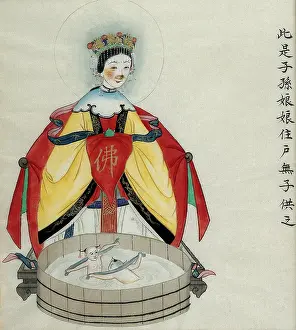 此是子孫娘娘住戶無子供之
佛